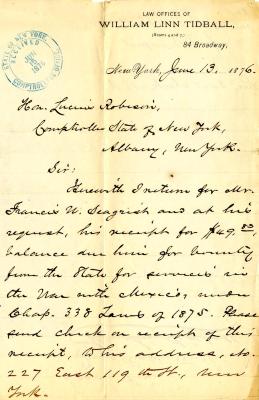 LAW OFFICES OF
WILLIAM LINN TIDBALL,
(Rooms 4 and 7,)
84 Broadway,
STATE OF NEW YORK,
RECEIVED
JUN
1876
COMPTROLLER'S
New York, June 13, 1876.
Hon. Lucius Robinson,
Comptroller State of New York,
Albany, New York.
Sir:
Herewith I return for Mr.
Francis W. Seagrist and at his
request, his receipt for $49.00,
balance due him for bounty
from the State for services in
the War with Mexico, under
Chap. 338 Laws of 1875. Please
send check on receipt of this
receipt, to his address, No.
227 East 119th St., New
York.